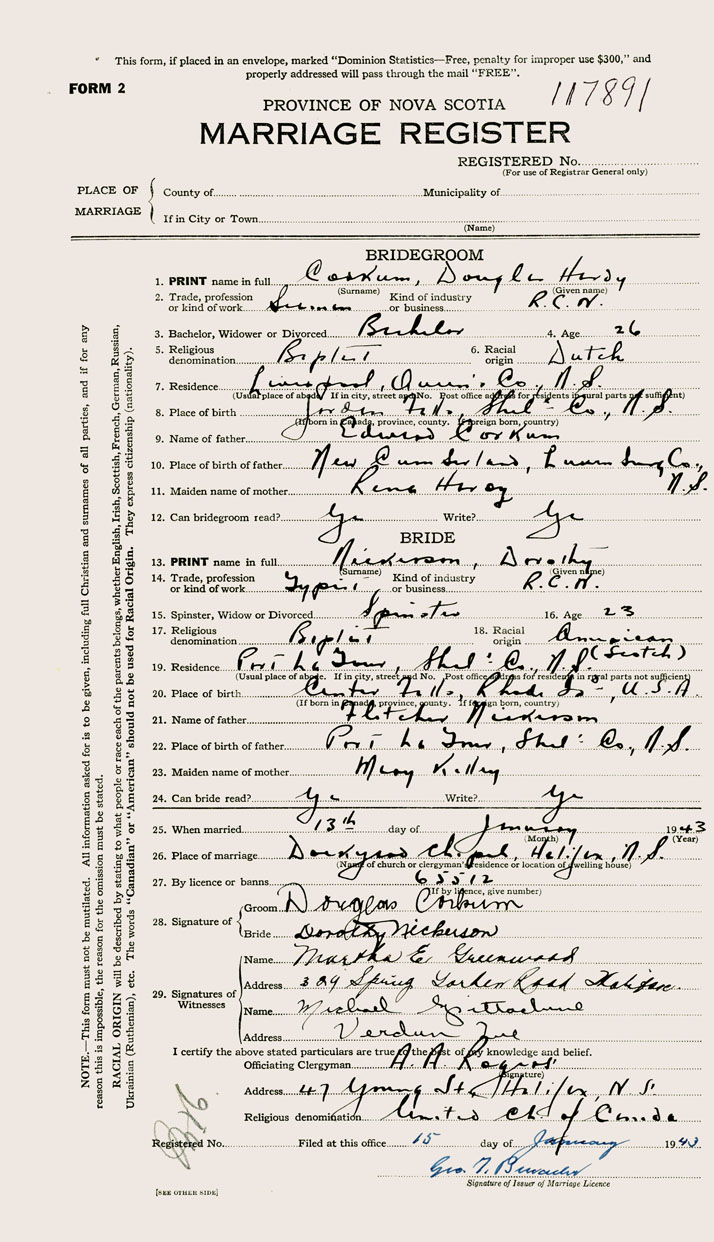 This form, if placed in an envelope, marked "Dominion Statistics—Free, penalty for improper use $300," and
properly addressed will pass through the mail "FREE".
FORM 2
117891
PROVINCE OF NOVA SCOTIA
MARRIAGE REGISTER
REGISTERED No.
(For use of Registrar General only)
PLACE OF MARRIAGE
County of Municipality of
If in City or Town
(Name)
BRIDEGROOM
1. PRINT name in full Corkum, Douglas Hardy
(Surname) (Given name)
2. Trade, profession or kind of work Seaman Kind of industry or business R.C.N.
3. Bachelor, Widower or Divorced Bachelor 4. Age 26
5. Religious denomination Baptist 6. Racial origin Dutch
7. Residence Liverpool, Queen's Co., N.S.
(Usual place of abode. If in city, street and No. Post office address for residents in rural parts not sufficient)
8. Place of birth Jordan Falls, Shel. Co., N.S.
(If born in Canada, province, county. If foreign born, country)
9. Name of father Edward Corkum
10. Place of birth of father New Cumberland, Lunenburg Co., N.S.
11. Maiden name of mother Rena Hardy
12. Can bridegroom read? Yes Write? Yes
BRIDE
13. PRINT name in full Nickerson, Dorothy
(Surname) (Given name)
14. Trade, profession or kind of work Typist Kind of industry or business R.C.N.
15. Spinster, Widow or Divorced Spinster 16. Age 23
17. Religious denomination Baptist 18. Racial origin American (Scotch)
19. Residence Port La Tour, Shel. Co., N.S.
(Usual place of abode. If in city, street and No. Post office address for residents in rural parts not sufficient)
20. Place of birth Center Falls, Rhode Isd, U.S.A.
(If born in Canada, province, county. If foreign born, country)
21. Name of father Fletcher Nickerson
22. Place of birth of father Port La Tour, Shel. Co., N.S.
23. Maiden name of mother Mary Kelley
24. Can bride read? Yes Write? Yes
25. When married 13th day of January 1943
(Month) (Year)
26. Place of marriage Dockyard Chapel, Halifax, N.S.
(Name of church or clergyman's residence or location of dwelling house)
27. By licence or banns 65512
(If by licence, give number)
28. Signature of Groom Douglas Corkum
Bride Dorothy Nickerson
29. Signatures of Witnesses
Name Martha E Greenwood
Address 329 Spring Garden Road Halifax.
Name Michael
Address Verdun Que
I certify the above stated particulars are true to the best of my knowledge and belief.
Officiating Clergyman A. A.
(Signature)
Address 47 Young St., Halifax, N.S.
Religious denomination United Ch. of Canada
Registered No. Filed at this office 15 day of January 1943
Geo. T.
Signature of Issuer of Marriage Licence
[SEE OTHER SIDE]
NOTE.—This form must not be mutilated. All information asked for is to be given, including full Christian and surnames of all parties, and if for any
reason this is impossible, the reason for the omission must be stated.
RACIAL ORIGIN will be described by stating to what people or race each of the parents belongs, whether English, Irish, Scottish, French, German, Russian,
Ukrainian (Ruthenian), etc. The words "Canadian" or "American" should not be used for Racial Origin. They express citizenship (nationality).